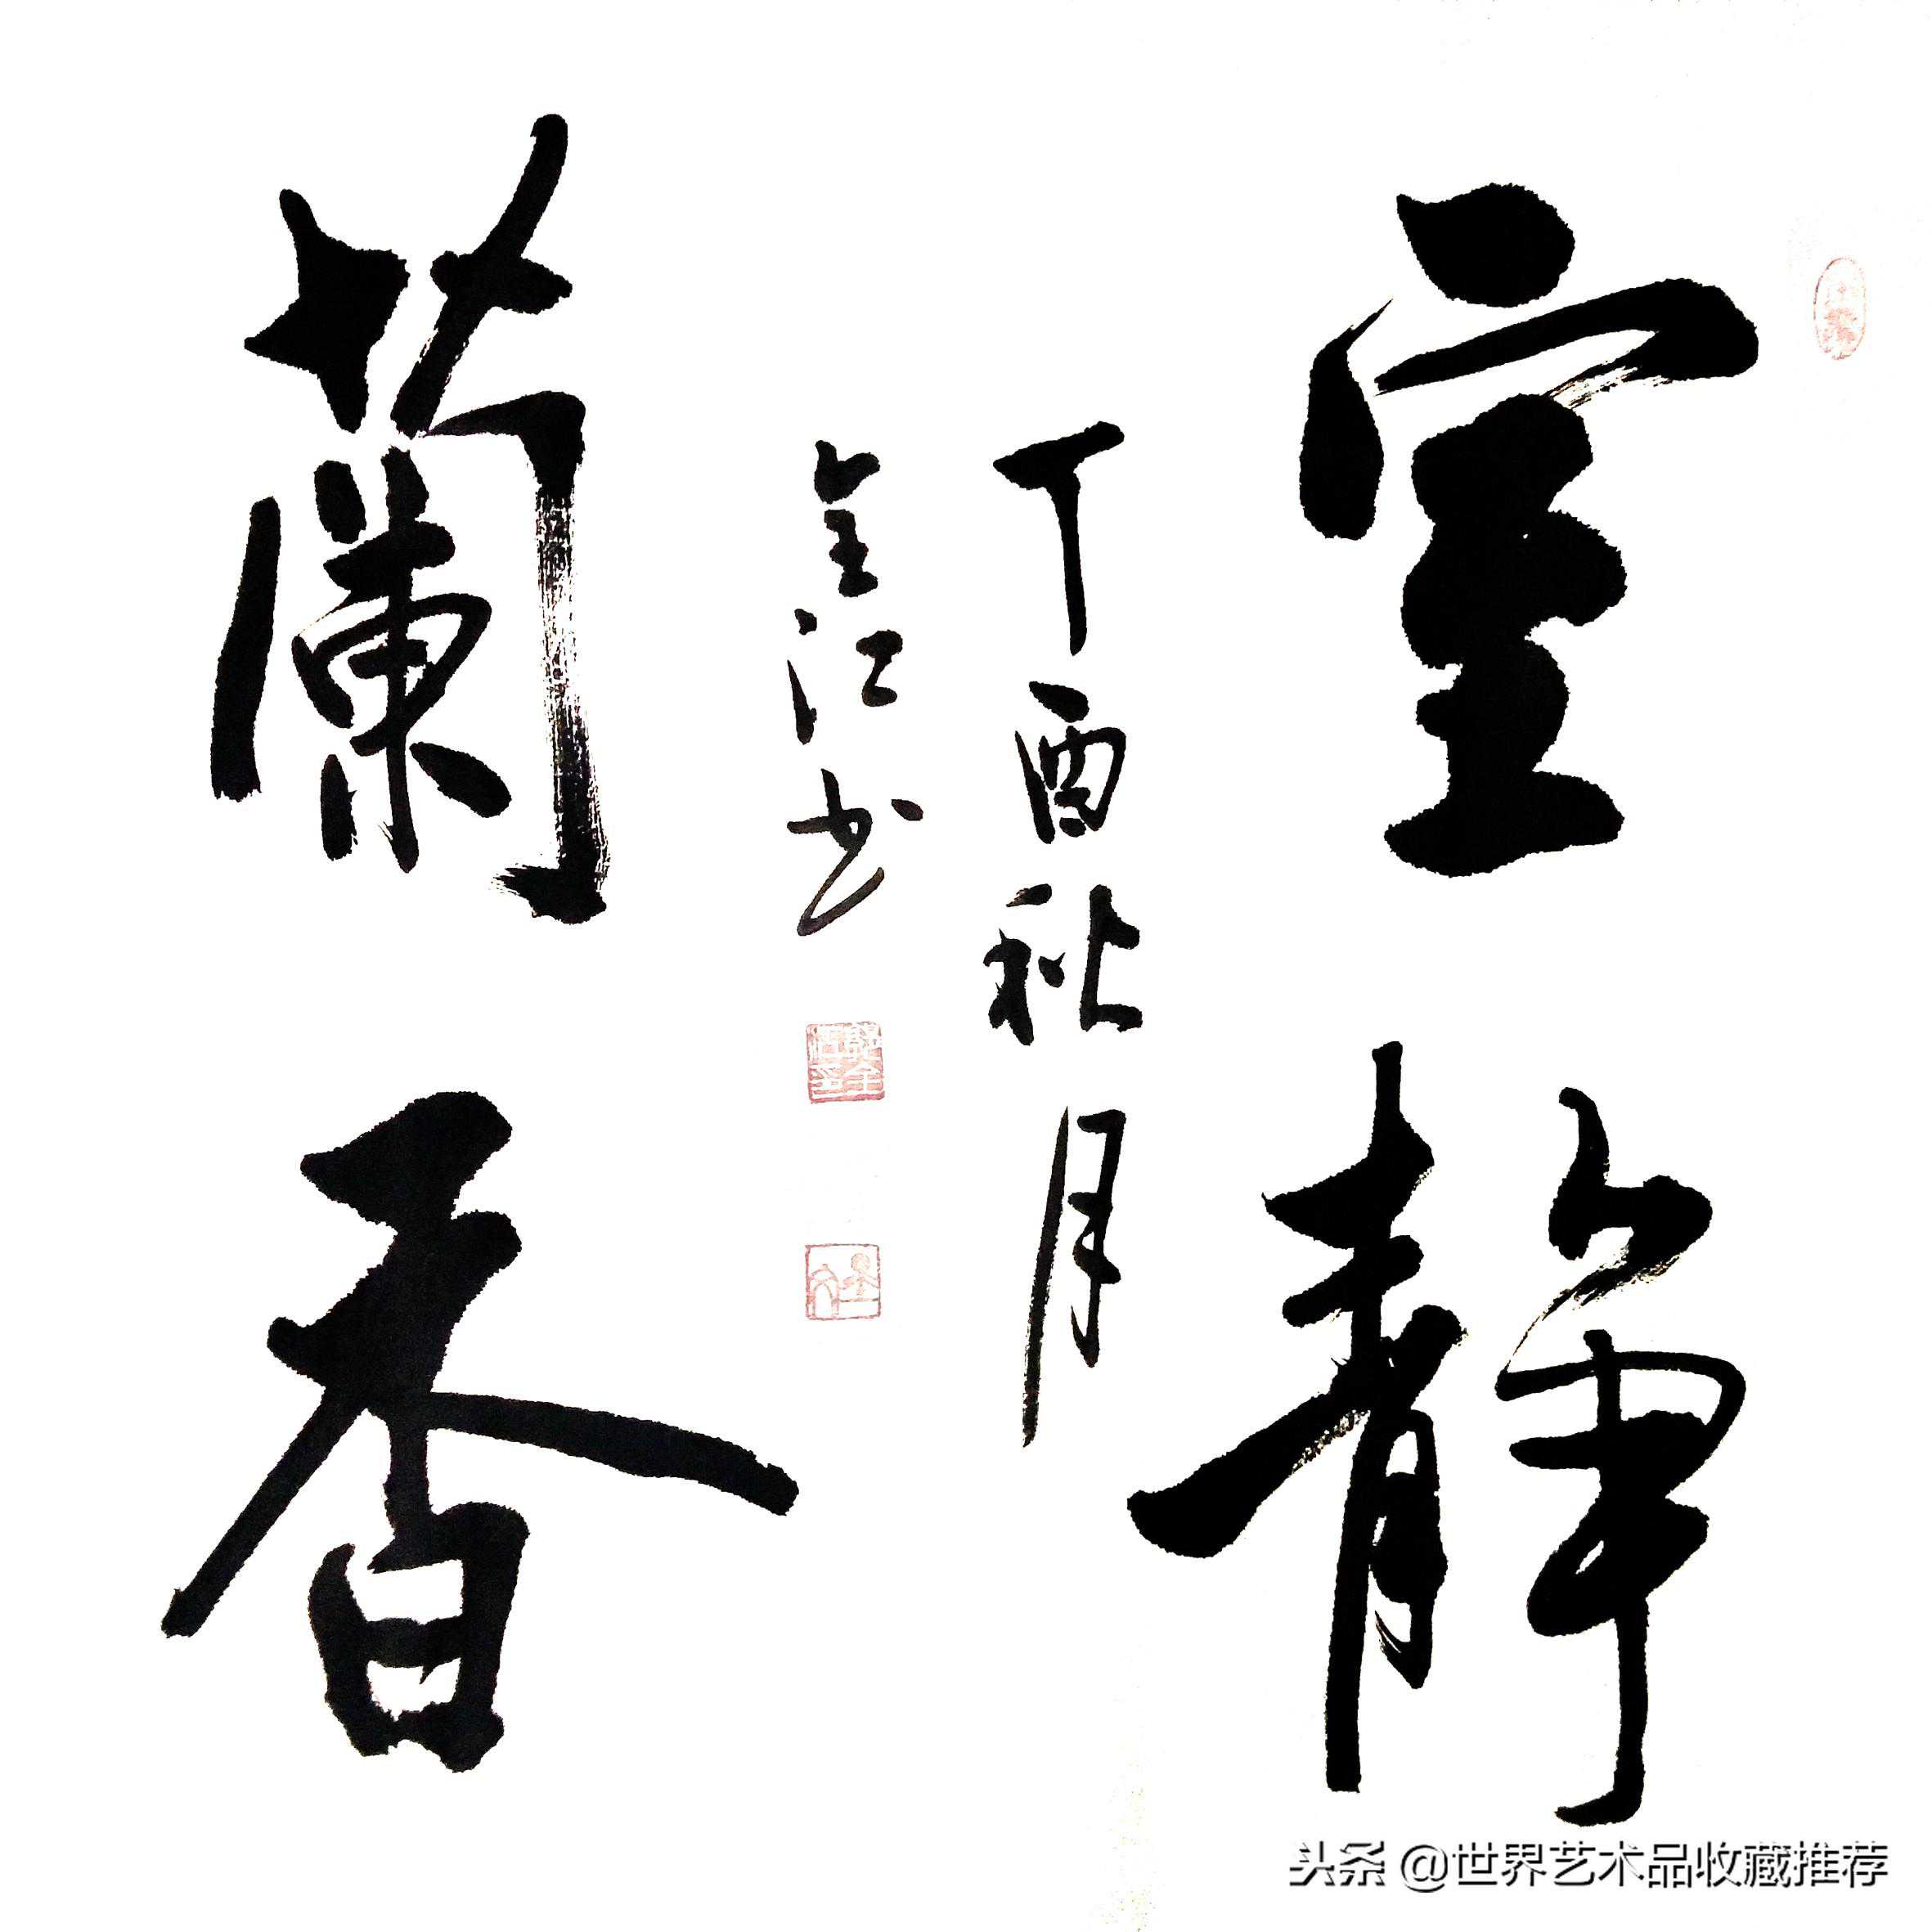 室静
蘭香
丁酉秋月
全江书
头条 @世界艺术品收藏推荐